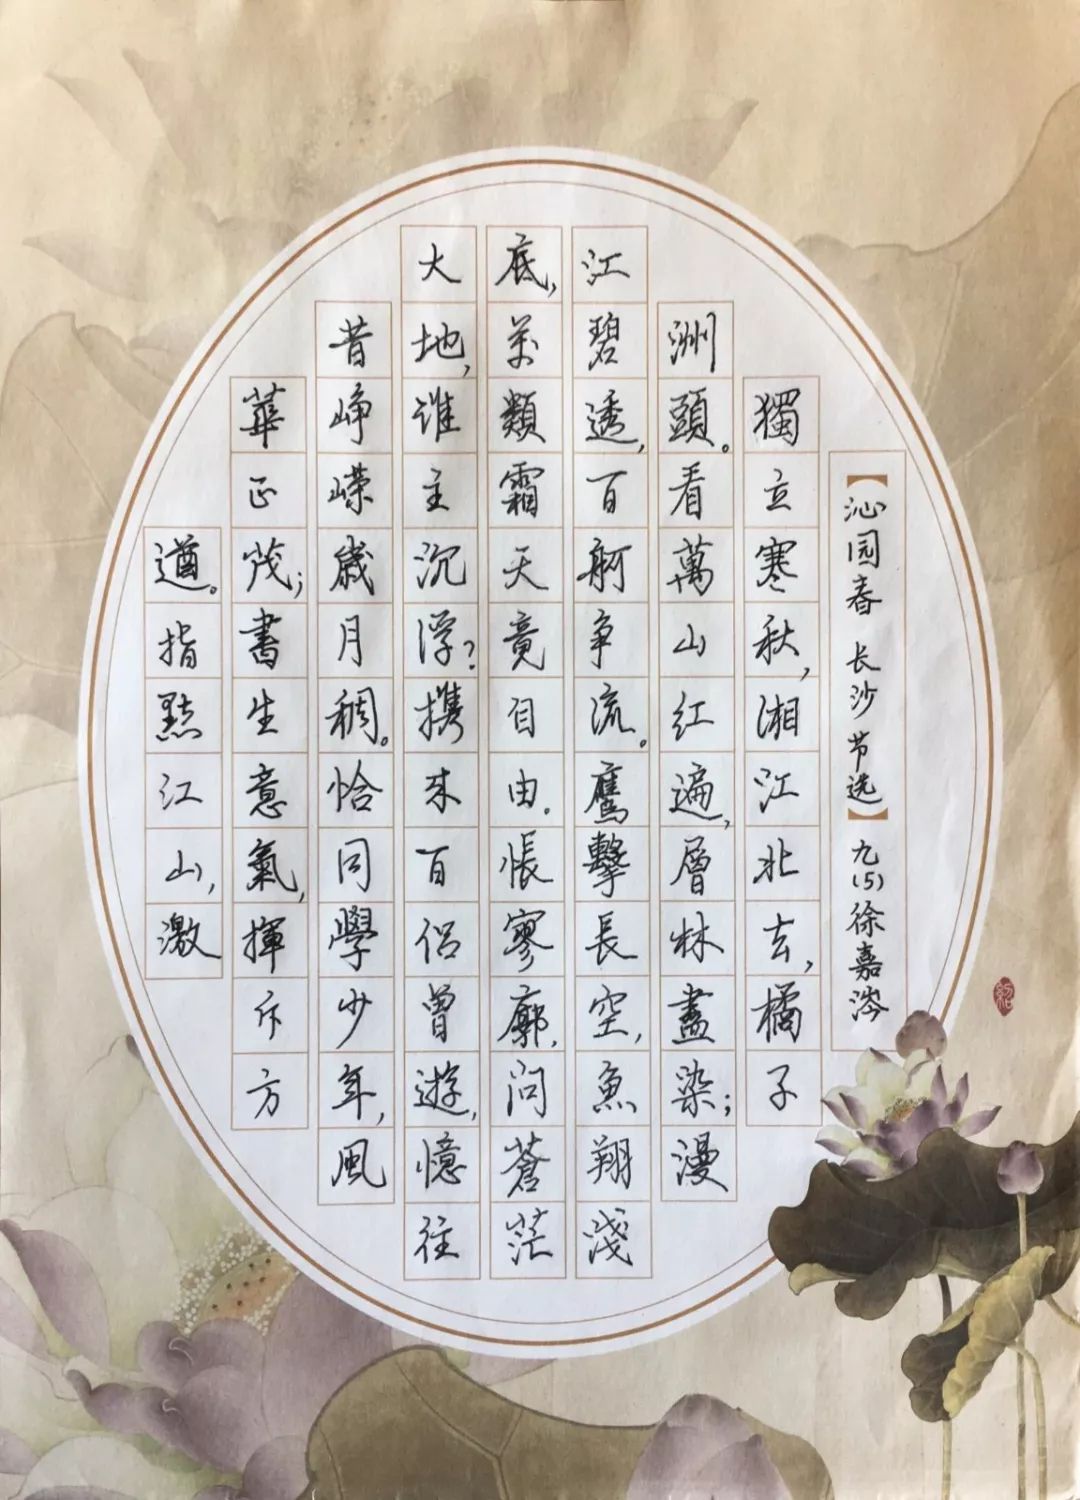 【沁园春 长沙节选】九(5)徐嘉涔
獨立寒秋,湘江北去,橘子
洲頭。看萬山红遍,層林盡染;漫
江碧透,百舸争流。鹰擊長空,魚翔浅
底,万類霜天竟自由.悵寥廓,问蒼茫
大地,谁主沉浮?携来百侣曾遊,憶往
昔峥嵘歲月稠。恰同學少年,風
華正茂;書生意氣,揮斥方
遒。指點江山,激